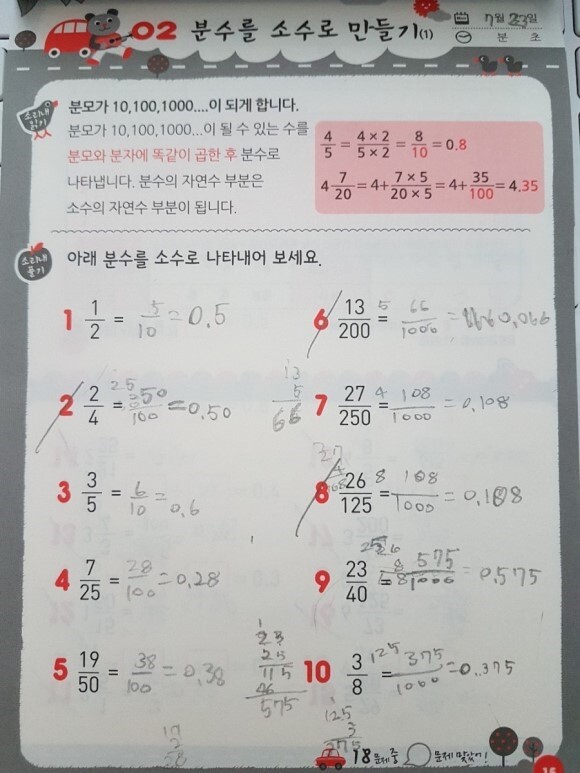 02 분수를 소수로 만들기(1)
7월 23일
분 초
소리내 읽기
분모가 10,100,1000....이 되게 합니다.
분모가 10,100,1000...이 될 수 있는 수를
분모와 분자에 똑같이 곱한 후 분수로
나타냅니다. 분수의 자연수 부분은
소수의 자연수 부분이 됩니다.
4/5 = 4×2/5×2 = 8/10 = 0.8
4 7/20 = 4+ 7×5/20×5 = 4+ 35/100 = 4.35
소리내 풀기
아래 분수를 소수로 나타내어 보세요.
1 1/2 = 5/10 = 0.5
2 2/4 = 50/100 = 0.50
3 3/5 = 6/10 = 0.6
4 7/25 = 28/100 = 0.28
5 19/50 = 38/100 = 0.38
6 13/200 = 5 66/1000 = 0.066
7 27/250 4 108/1000 = 0.108
8 26/125 8 108/1000 = 0.108
9 23/40 = 575/1000 = 0.575
10 3/8 = 125 375/1000 = 0.375
13
5
66
23
25
115
46
575
125
3
375
18문제 중 문제 맞았어!